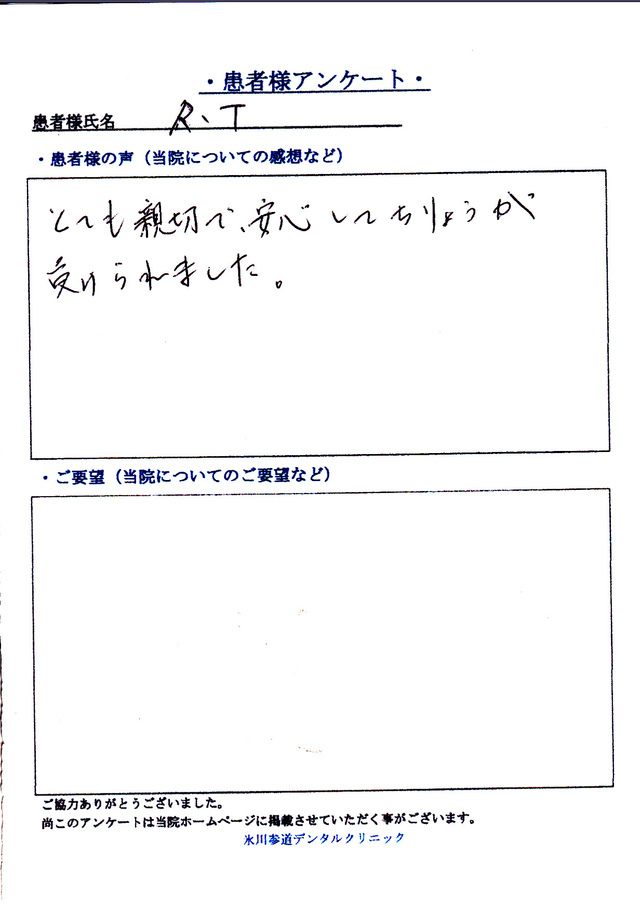 ・患者様アンケート・
患者様氏名 R.T
・患者様の声（当院についての感想など）
とても親切で、安心してちりょうが
受けられました。
・ご要望（当院についてのご要望など）
ご協力ありがとうございました。
尚このアンケートは当院ホームページに掲載させていただく事がございます。
氷川参道デンタルクリニック